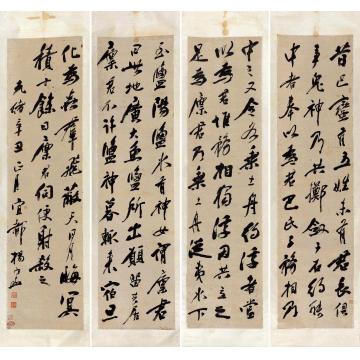 昔巴蠻有五姓未有君長俱
事鬼神乃共擲劍于石約能
中者奉以為君巴氏子務相乃
中之又令各乘土舟約浮者當
以為君惟務相獨浮因共立之
是為廩君乃乘土舟從夷水下
至鹽陽鹽水有神女謂廩君
曰此地廣大魚鹽所出願留共居
廩君不許鹽神暮輒來宿旦
化為蟲群飛蔽天日月晦冥
積十餘日廩君伺便射殺之
光緒辛丑正月宜都楊守敬